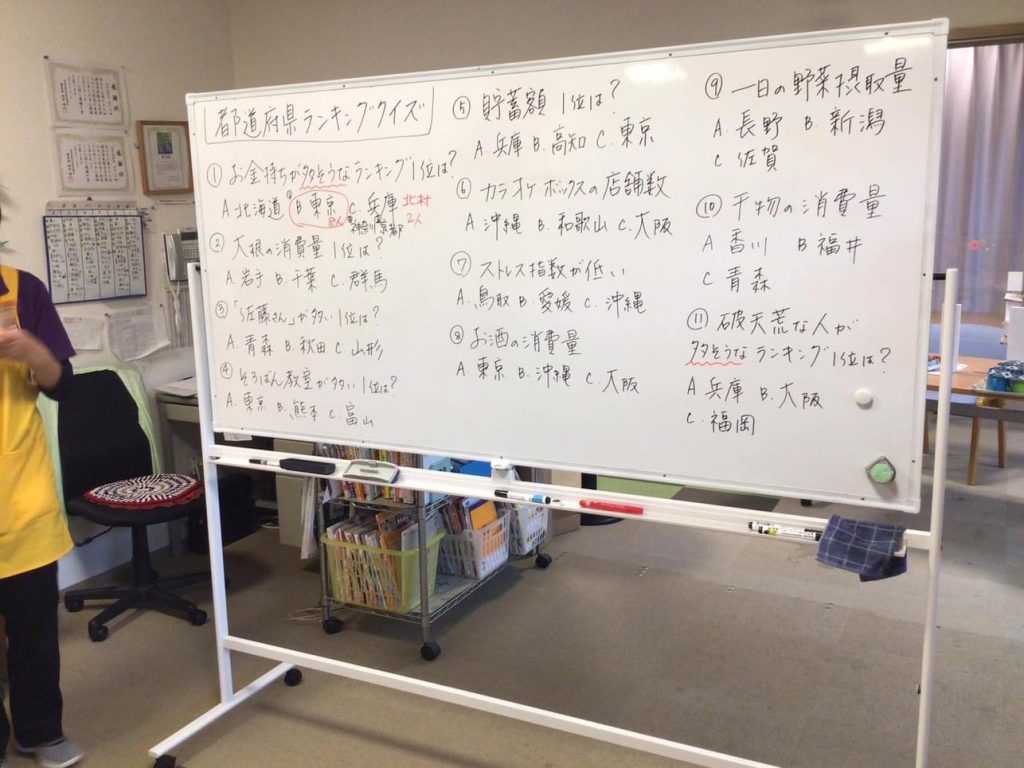 都道府県ランキングクイズ
① お金持ちが多そうなランキング1位は?
A 北海道 B 東京 C. 兵庫 北村
2人
神奈川 京都
② 大根の消費量 1位は?
A. 岩手 B. 千葉 C. 群馬
③ 「佐藤さん」が多い1位は?
A. 青森 B. 秋田 C. 山形
④ そろばん教室が多い1位は?
A. 東京 B. 熊本 C. 富山
⑤ 貯蓄額 1位は?
A. 兵庫 B. 高知 C. 東京
⑥ カラオケボックスの店舗数
A. 沖縄 B. 和歌山 C. 大阪
⑦ ストレス指数が低い
A. 鳥取 B. 愛媛 C. 沖縄
⑧ お酒の消費量
A. 東京 B. 沖縄 C. 大阪
⑨ 一日の野菜摂取量
A. 長野 B. 新潟
C 佐賀
⑩ 干物の消費量
A 香川 B 福井
C 青森
⑪ 破天荒な人が
多そうなランキング1位は?
A 兵庫 B. 大阪
C. 福岡